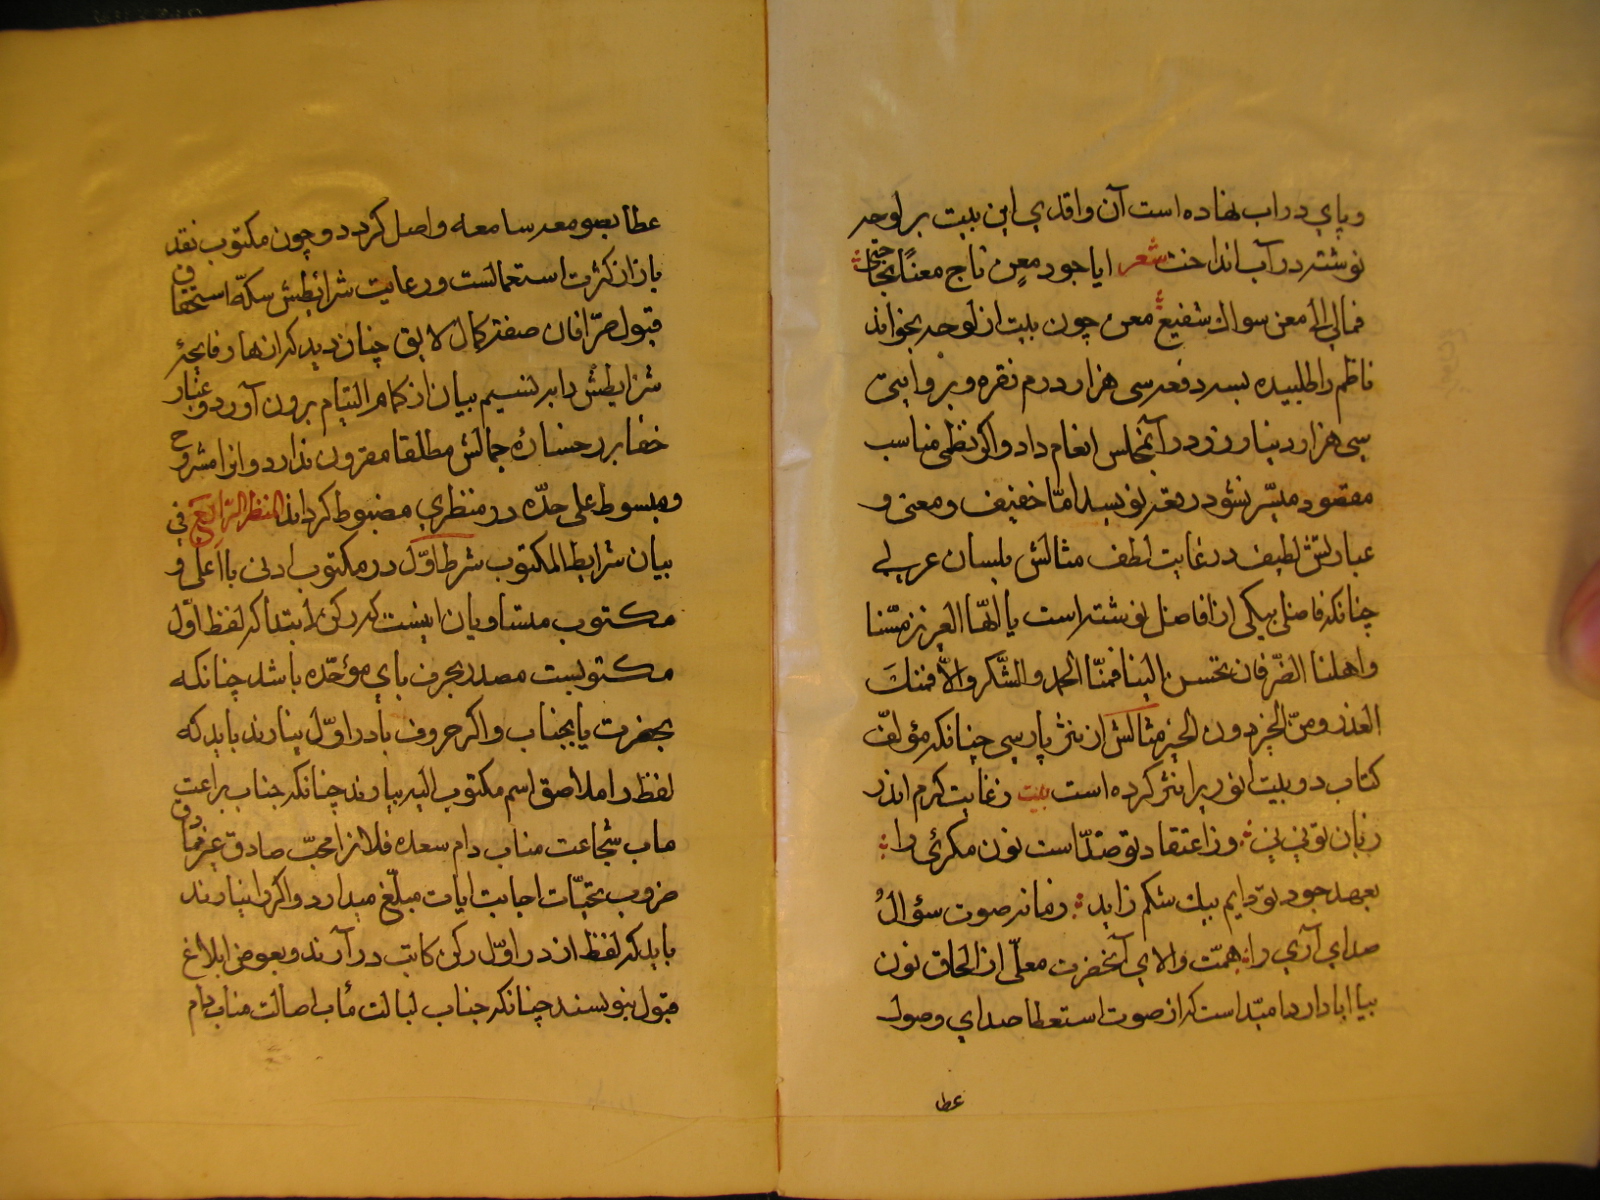 و پاي در اب نهاده است آن واقدي اين بيت بر لوحه
نوشته در آب انداخت شعر ايا جود معن ناج معنًا بحاجتي
فمالي الي معن سواك شفيع معن چون بيت از لوحه بخواند
ناظم را طلبيده بسه دفعه سي هزار درم نقره و بروايتي
سي هزار دينار زر در آنمجلس انعام داد و اكر نظمي مناسب
مقصود ميسّر نشود رقعه نويسد امّا خفيف و معني و
عبارتش لطيف در غايت لطف مثالش بلسان عربي
چنانكه فاضلي بيكي از افاضل نوشته است يا ايّها العزيز مسّنا
و اهلنا الضّر فان تحسن الينا فمنّا الحمد و الشّكر و الّا فمنك
العذر و منّ الخبز دون الخبز مثالش از نثر پارسي چنانكه مؤلّف
كتاب دو بيت انوري را نثر كرده است بيت ز غايت كرم اندر
زبان تو ني ني و ز اعتقاد تو ضدّ است نون مكر ئي را
بعهد جود تو دايم بيك شكم زايد زمانه صوت سؤال
صداي آري را همّت والاي آنحضرت معلّي از الحاق نون
بيا ابا دارد مبدّا است كه از صوت استعطا صداي وصول
عطا
عطا بصومعه سامعه واصل كردد و چون مكتوب نقد
بازار كثرت استعمالست و رعايت شرائطش سكّه استحقاق
قبول صرّافان صفقه كمال لايق چنان ديد كه ازهار فايحه
شرايطش را بر نسيم بيان از كمام التيام برون آورد و غبار
خفا بر رخساره جمالش مطلقا مقرون ندارد و انرا مشروح
و مبسوط علي حدّه در منظري مضبوط كرداند المنظر الرّابع في
بيان شرايط المكتوب شرط اوّل در مكتوب ادني با اعلي و
مكتوب متساويان اينست كه ركن ابتدا كه لفظ اوّل
مكتوبست مصدر بحرف باي موحّده باشد چنانكه
بحضرت يا بجناب و اكر حروف با در اوّل نيارند بايد كه
لفظ را ملاصق اسم مكتوب اليه بيارند چنانكه جناب براعت
ماب شجاعت مناب دام سعده فلانرا محبّ صادق
ضروب تحيّات اجابت ايات مبلّغ ميدارد و اكر را نيارند
بايد كه لفظ از در اوّل ركن كاتب در آرند و بعوض ابلاغ
قبول بنويسند چنانكه جناب ايالت مأب اصالت مناب دام